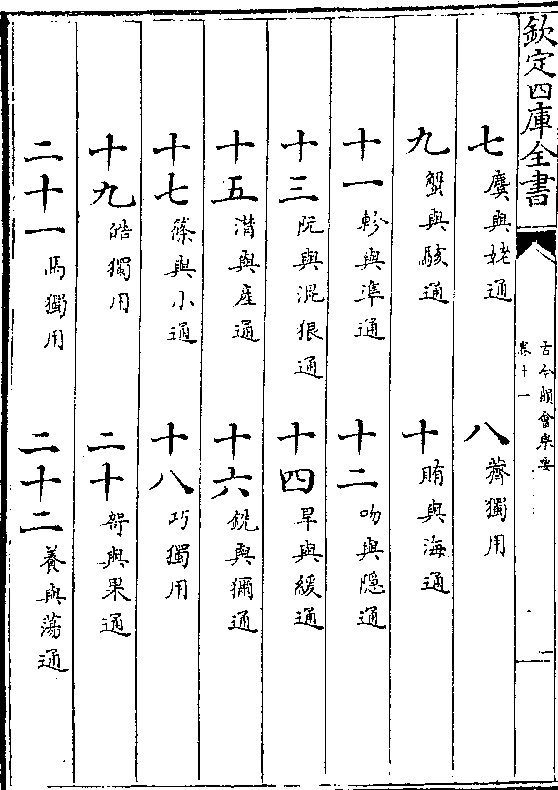 欽定四庫全書
古今韻會舉要
卷十一
七麌與姥通 八薺獨用
九蟹與駭通 十賄與海通
十一軫與準通 十二吻與隱通
十三阮與混很通 十四旱與緩通
十五潸與產通 十六銑與獮通
十七篠與小通 十八巧獨用
十九皓獨用 二十哿與果通
二十一馬獨用 二十二養與蕩通